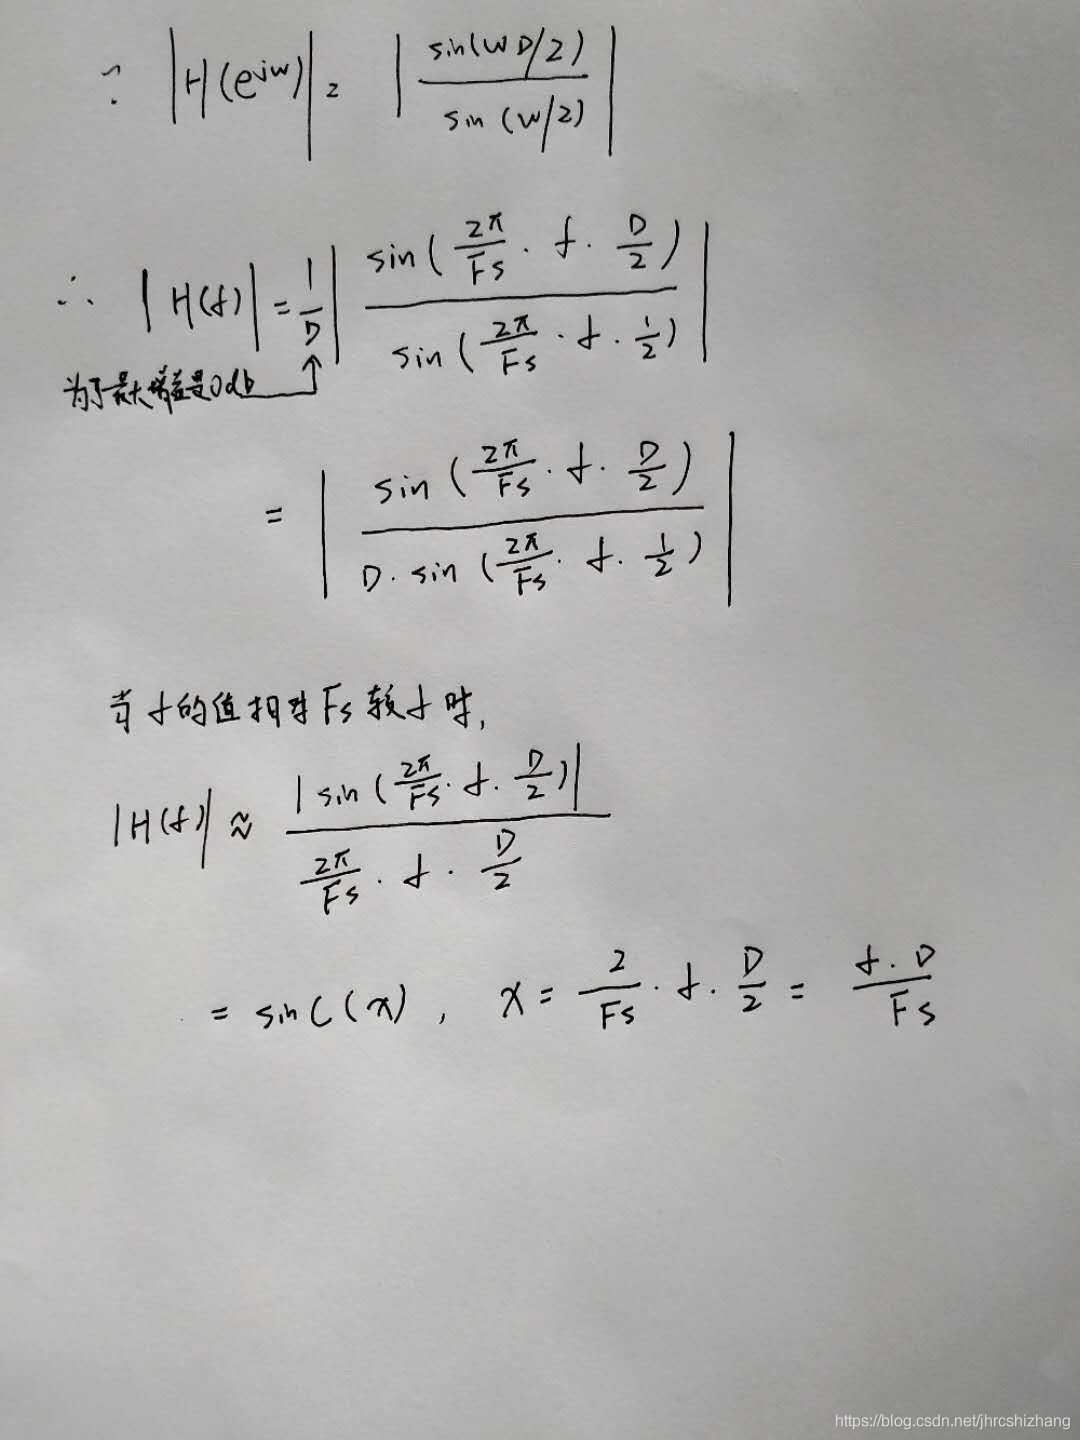 ∵ |H(e^{jw})| = | sin(wD/2) / sin(w/2) |
∴ |H(f)| = 1/D | sin(2π/Fs · f · D/2) / sin(2π/Fs · f · 1/2) |
为了最大增益是0db
= | sin(2π/Fs · f · D/2) / D · sin(2π/Fs · f · 1/2) |
当f的值相对Fs较小时,
|H(f)| ≈ |sin(2π/Fs · f · D/2)| / 2π/Fs · f · D/2
= sinc(x), x = 2/Fs · f · D/2 = f·D/Fs
https://blog.csdn.net/jhrcshizhang